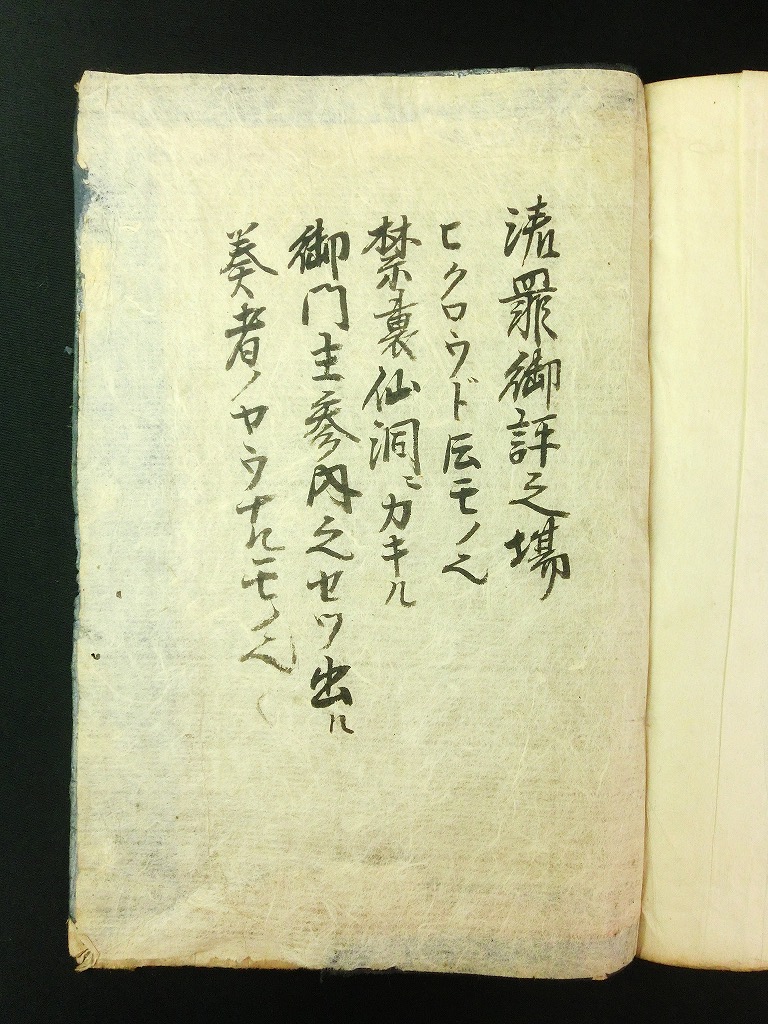 罪御評之場
ヒクロウド云モノ也
禁裏仙洞ニカキル
御門主参内之セツ出ル
奏者ノヤウナルモノ也